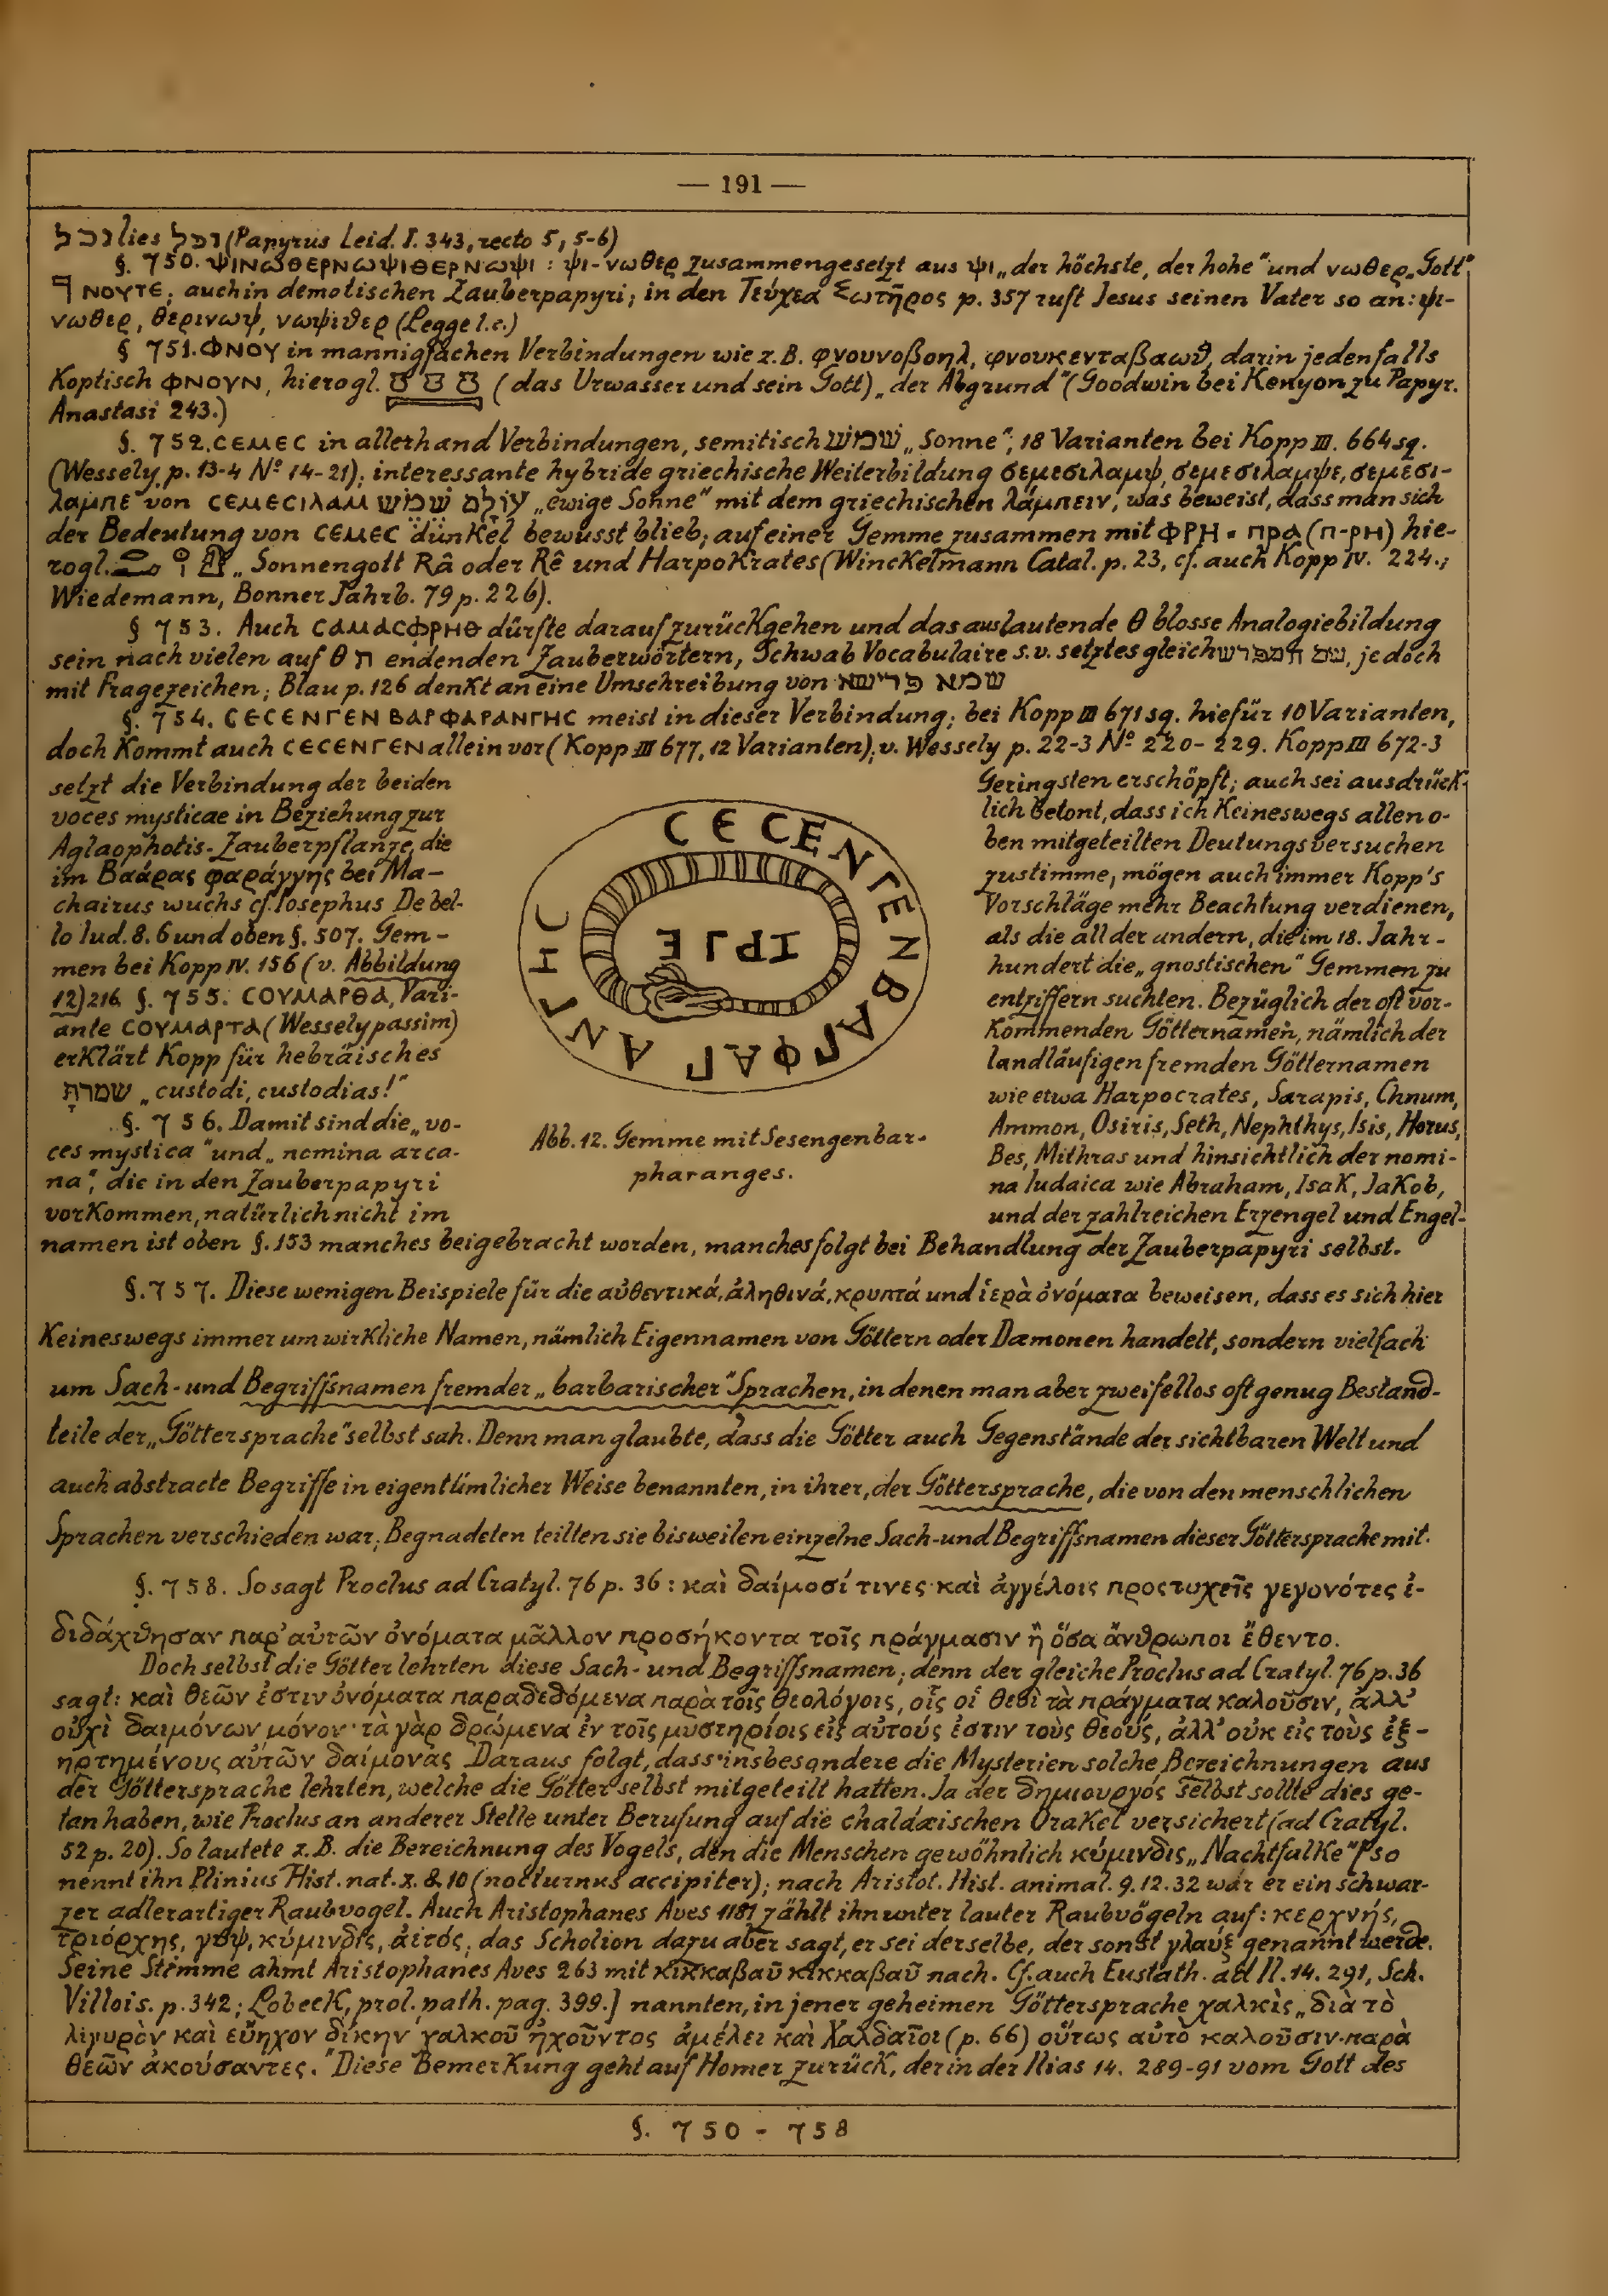 — 191 —
נכל lies וכל (Papyrus Leid. I. 343, recto 5, 5-6)
§. 750. ΨΙΝΩΘΕΡΝΩΨΙΘΕΡΝΩΨΙ : ψι-νωθερ zusammengesetzt aus ψι „der höchste, der hohe“ und νωθερ „Gott“
ΝΟΥΤΕ; auch in demotischen Zauberpapyri; in den Τεύχεα Σωτῆρος p. 357 ruft Jesus seinen Vater so an: ψι-
νωθερ, θερινωψ, νωψιθερ (Legge l.c.)
§ 751. ΦΝΟΥ in mannigfachen Verbindungen wie z.B. φνουνοβοηλ, φνουκενταβαωθ, darin jedenfalls
Koptisch ΦΝΟΥΝ, hierogl. (das Urwasser und sein Gott) „der Abgrund“ (Goodwin bei Kenyon zu Papyr.
Anastasi 243.)
§. 752. CЄMЄC in allerhand Verbindungen, semitisch שׁמשׁ „Sonne“; 18 Varianten bei Kopp III. 664 sq.
(Wessely p. 13-4 Nº 14-21); interessante hybride griechische Weiterbildung σεμεσιλαμψ, σεμεσιλαμψε, σεμεσι-
λαμπε von CЄMЄCIΛAM שׁמשׁ עוֹלָם „ewige Sonne“ mit dem griechischen λάμπειν, was beweist, dass man sich
der Bedeutung von CЄMЄC dunkel bewusst blieb; auf einer Gemme zusammen mit ΦΡΗ = πρα (π-ρη) hie-
rogl. „Sonnengott Râ oder Rê und Harpokrates (Winckelmann Catal. p. 23, cf. auch Kopp IV. 224.;
Wiedemann, Bonner Jahrb. 79 p. 226).
§ 753. Auch CAMACΦPHΘ dürfte darauf zurückgehen und das auslautende θ blosse Analogiebildung
sein nach vielen auf θ ת endenden Zauberwörtern, Schwab Vocabulaire s.v. setzt es gleich שם המפרש, jedoch
mit Fragezeichen; Blau p. 126 denkt an eine Umschreibung von שמא פרישא
§. 754. CЄCЄNΓЄN BAPΦAPANΓHC meist in dieser Verbindung; bei Kopp III 671 sq. hiefür 10 Varianten,
doch kommt auch CЄCЄNΓЄN allein vor (Kopp III 677, 12 Varianten); v. Wessely p. 22-3 Nº 220-229. Kopp III 672-3
setzt die Verbindung der beiden
voces mysticae in Beziehung zur
Aglaophotis-Zauberpflanze, die
im Βαάρας φαράγγης bei Ma-
chairus wuchs cf. Iosephus De bel-
lo Iud. 8. 6 und oben §. 507. Gem-
men bei Kopp IV. 156 (v. Abbildung
12) 216. §. 755. COYMAPΘA, Vari-
ante COYMAPTA (Wessely passim)
erklärt Kopp für hebräisches
שמרתָ „custodi, custodias!“
§. 756. Damit sind die „vo-
ces mystica“ und „nomina arca-
na“, die in den Zauberpapyri
vorkommen, natürlich nicht im
CЄCЄNΓЄNBAPΦAPANΓHC
Abb. 12. Gemme mit Sesengenbar-
pharanges.
Geringsten erschöpft; auch sei ausdrück-
lich betont, dass ich keineswegs allen o-
ben mitgeteilten Deutungsversuchen
zustimme, mögen auch immer Kopp's
Vorschläge mehr Beachtung verdienen,
als die all der andern, die im 18. Jahr-
hundert die „gnostischen“ Gemmen zu
entziffern suchten. Bezüglich der oft vor-
kommenden Götternamen, nämlich der
landläufigen fremden Götternamen
wie etwa Harpocrates, Sarapis, Chnum,
Ammon, Osiris, Seth, Nephthys, Isis, Horus,
Bes, Mithras und hinsichtlich der nomi-
na Iudaica wie Abraham, Isak, Jakob,
und der zahlreichen Erzengel und Engel-
namen ist oben §. 153 manches beigebracht worden, manches folgt bei Behandlung der Zauberpapyri selbst.
§. 757. Diese wenigen Beispiele für die αὐθεντικά, ἀληθινά, κρυπτά und ἱερὰ ὀνόματα beweisen, dass es sich hier
keineswegs immer um wirkliche Namen, nämlich Eigennamen von Göttern oder Dæmonen handelt, sondern vielfach
um Sach- und Begriffsnamen fremder „barbarischer“ Sprachen, in denen man aber zweifellos oft genug Bestand-
teile der „Göttersprache“ selbst sah. Denn man glaubte, dass die Götter auch Gegenstände der sichtbaren Welt und
auch abstracte Begriffe in eigentümlicher Weise benannten, in ihrer, der Göttersprache, die von den menschlichen
Sprachen verschieden war; Begnadeten teilten sie bisweilen einzelne Sach- und Begriffsnamen dieser Göttersprache mit.
§. 758. So sagt Proclus ad Cratyl. 76 p. 36 : καὶ δαίμοσί τινες καὶ ἀγγέλοις προςτυχεῖς γεγονότες ἐ-
διδάχθησαν παρ' αὐτῶν ὀνόματα μᾶλλον προσήκοντα τοῖς πράγμασιν ἢ ὅσα ἄνθρωποι ἔθεντο.
Doch selbst die Götter lehrten diese Sach- und Begriffsnamen; denn der gleiche Proclus ad Cratyl. 76 p. 36
sagt: καὶ θεῶν ἐστιν ὀνόματα παραδεδόμενα παρὰ τοῖς θεολόγοις, οἷς οἱ θεοὶ τὰ πράγματα καλοῦσιν, ἀλλ'
οὐχὶ δαιμόνων μόνον· τὰ γὰρ δρώμενα ἐν τοῖς μυστηρίοις εἰς αὐτούς ἐστιν τοὺς θεούς, ἀλλ' οὐκ εἰς τοὺς ἐξ-
ηρτημένους αὐτῶν δαίμονας Daraus folgt, dass insbesondere die Mysterien solche Bezeichnungen aus
der Göttersprache lehrten, welche die Götter selbst mitgeteilt hatten. Ja der δημιουργός selbst sollte dies ge-
tan haben, wie Proclus an anderer Stelle unter Berufung auf die chaldæischen Orakel versichert (ad Cratyl.
52 p. 20). So lautete z.B. die Bezeichnung des Vogels, den die Menschen gewöhnlich κύμινδις „Nachtfalke“ [so
nennt ihn Plinius Hist. nat. X. 8. 10 (nocturnus accipiter); nach Aristot. Hist. animal. 9. 12. 32 war er ein schwar-
zer adlerartiger Raubvogel. Auch Aristophanes Aves 1181 zählt ihn unter lauter Raubvögeln auf: κερχνής,
τριόρχης, γύψ, κύμινδις, ἀιτός; das Scholion dazu aber sagt, er sei derselbe, der sonst γλαύξ genannt werde.
Seine Stimme ahmt Aristophanes Aves 263 mit κικκαβαῦ κικκαβαῦ nach. Cf. auch Eustath. ad Il. 14. 291, Sch.
Villois. p. 342; Lobeck, prol. path. pag. 399.] nannten, in jener geheimen Göttersprache χαλκὶς „διὰ τὸ
λιγυρὸν καὶ εὔηχον δίκην χαλκοῦ ἠχοῦντος ἀμέλει καὶ Χαλδαῖοι (p. 66) οὕτως αὐτὸ καλοῦσιν παρὰ
θεῶν ἀκούσαντες.“ Diese Bemerkung geht auf Homer zurück, der in der Ilias 14. 289-91 vom Gott des
§. 750 - 758